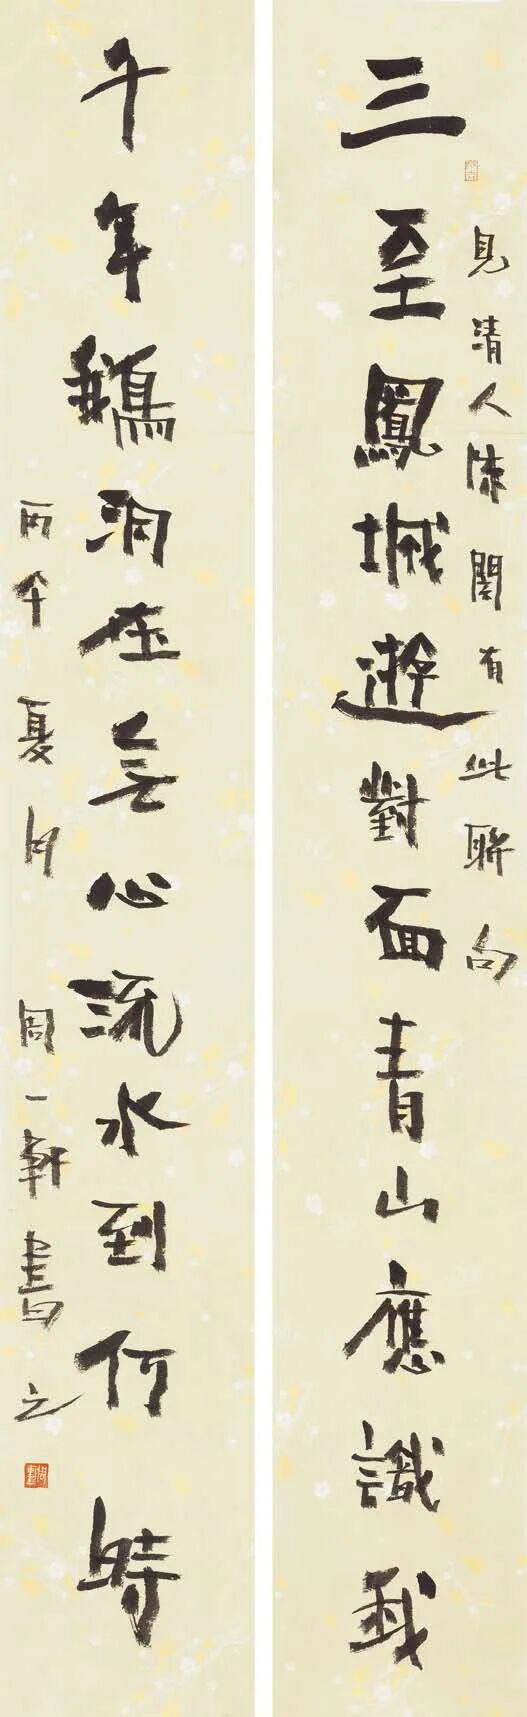 三至鳳城遊對面青山應識我
見清人陳有此聯句
千年鵝洞在無心流水到何時
丙午夏月 周一軒書之